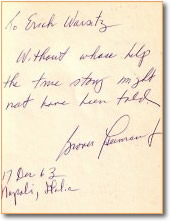 To Erich Warsitz
Without whose help
the true story might
not have been told
17 Dec 63
Napoli, Italia